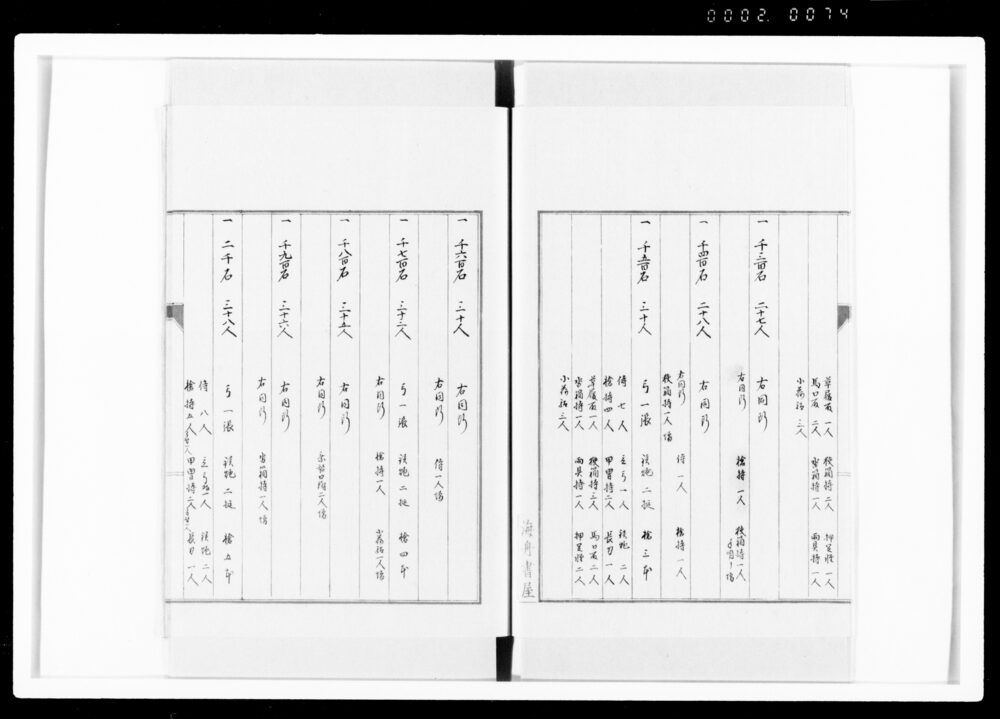 0002. 0074
草履取一人 挾箱持二人 押足軽一人
馬口取二人 沓箱持一人 雨具持一人
小荷駄三人
一 千三百石 二十七人 右同断
右同断 槍持一人 挾箱持一人
一 千四百石 二十八人 右同断
右同断 侍一人 槍持一人
挾箱持一人増
一 千五百石 三十人 弓一張 鉄炮二挺 槍三本
侍七人 立弓一人 鉄炮二人
槍持四人 甲冑持二人 長刀一人
草履取一人 挾箱持三人 馬口取二人
沓箱持一人 雨具持一人 押足軽二人
小荷駄三人
海舟書屋
一 千六百石 三十人 右同断
右同断 侍一人増
一 千七百石 三十三人 弓一張 鉄炮二挺 槍四本
右同断 槍持一人 小荷駄一人増
一 千八百石 三十五人 右同断
右同断 二人増
一 千九百石 三十六人 右同断
右同断 沓箱持一人増
一 二千石 三十八人 弓一張 鉄炮二挺 槍五本
侍八人 立弓一人 鉄炮二人
槍持五人 甲冑持二人 長刀一人